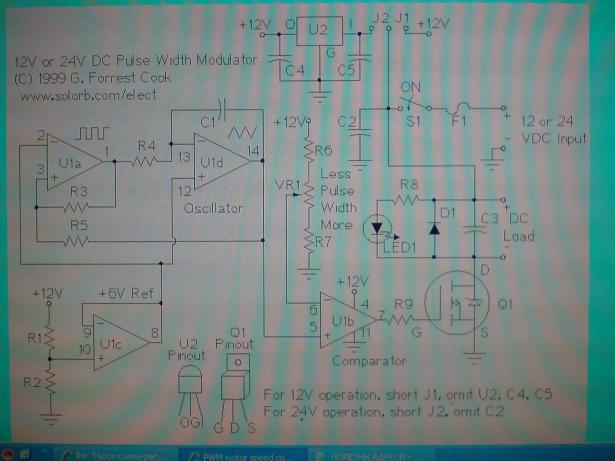 +12V O U2 I J2 J1 +12V
G
C4 C5
12V or 24V DC Pulse Width Modulator
(C) 1999 G. Forrest Cook
www.solorb.com/elect
ON
S1 F1
+
12 or 24
VDC Input
-
C1
+12V
C2
2 -
U1a 1
3 +
R4
13 -
U1d 14
12 +
Oscillator
R3
R5
R6
VR1
Less
Pulse
Width
More
R7
R8
LED1
D1
C3
+
DC
Load
-
+12V
+6V Ref
R1
R2
9 -
U1c 8
10 +
+12V
6 - 4
U1b 7
5 + 11
Comparator
R9
G
D
Q1
S
U2
Pinout
OGI
Q1
Pinout
G D S
For 12V operation, short J1, omit U2, C4, C5
For 24V operation, short J2, omit C2
PWM motor speed co...